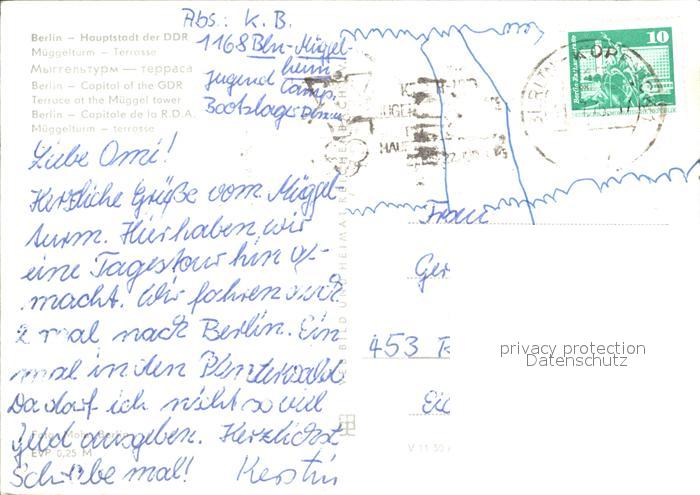 Abs.: K. B.
1168 Bln-Müggel-
heim
Jugend Camp,
Bootslager
Berlin – Hauptstadt der DDR
Müggelturm – Terrasse
Мыггельтурм — терраса
Berlin – Capital of the GDR
Terrace at the Müggel tower
Berlin – Capitale de la R.D.A.
Müggelturm – terrasse
10
Liebe Omi!
Herzliche Grüße vom Müggel-
turm. Hier haben wir
eine Tagestour hin ge-
macht. Wir fahren auch
2 mal nach Berlin. Ein
mal in den Plänterwald.
Da darf ich nicht so viel
Geld ausgeben. Herzlichst
Schreibe mal! Kerstin
EVP 0,25 M
VEB BILD UND HEIMAT REICHENBACH
Frau
Ger
453
privacy protection
Datenschutz
V 11 50